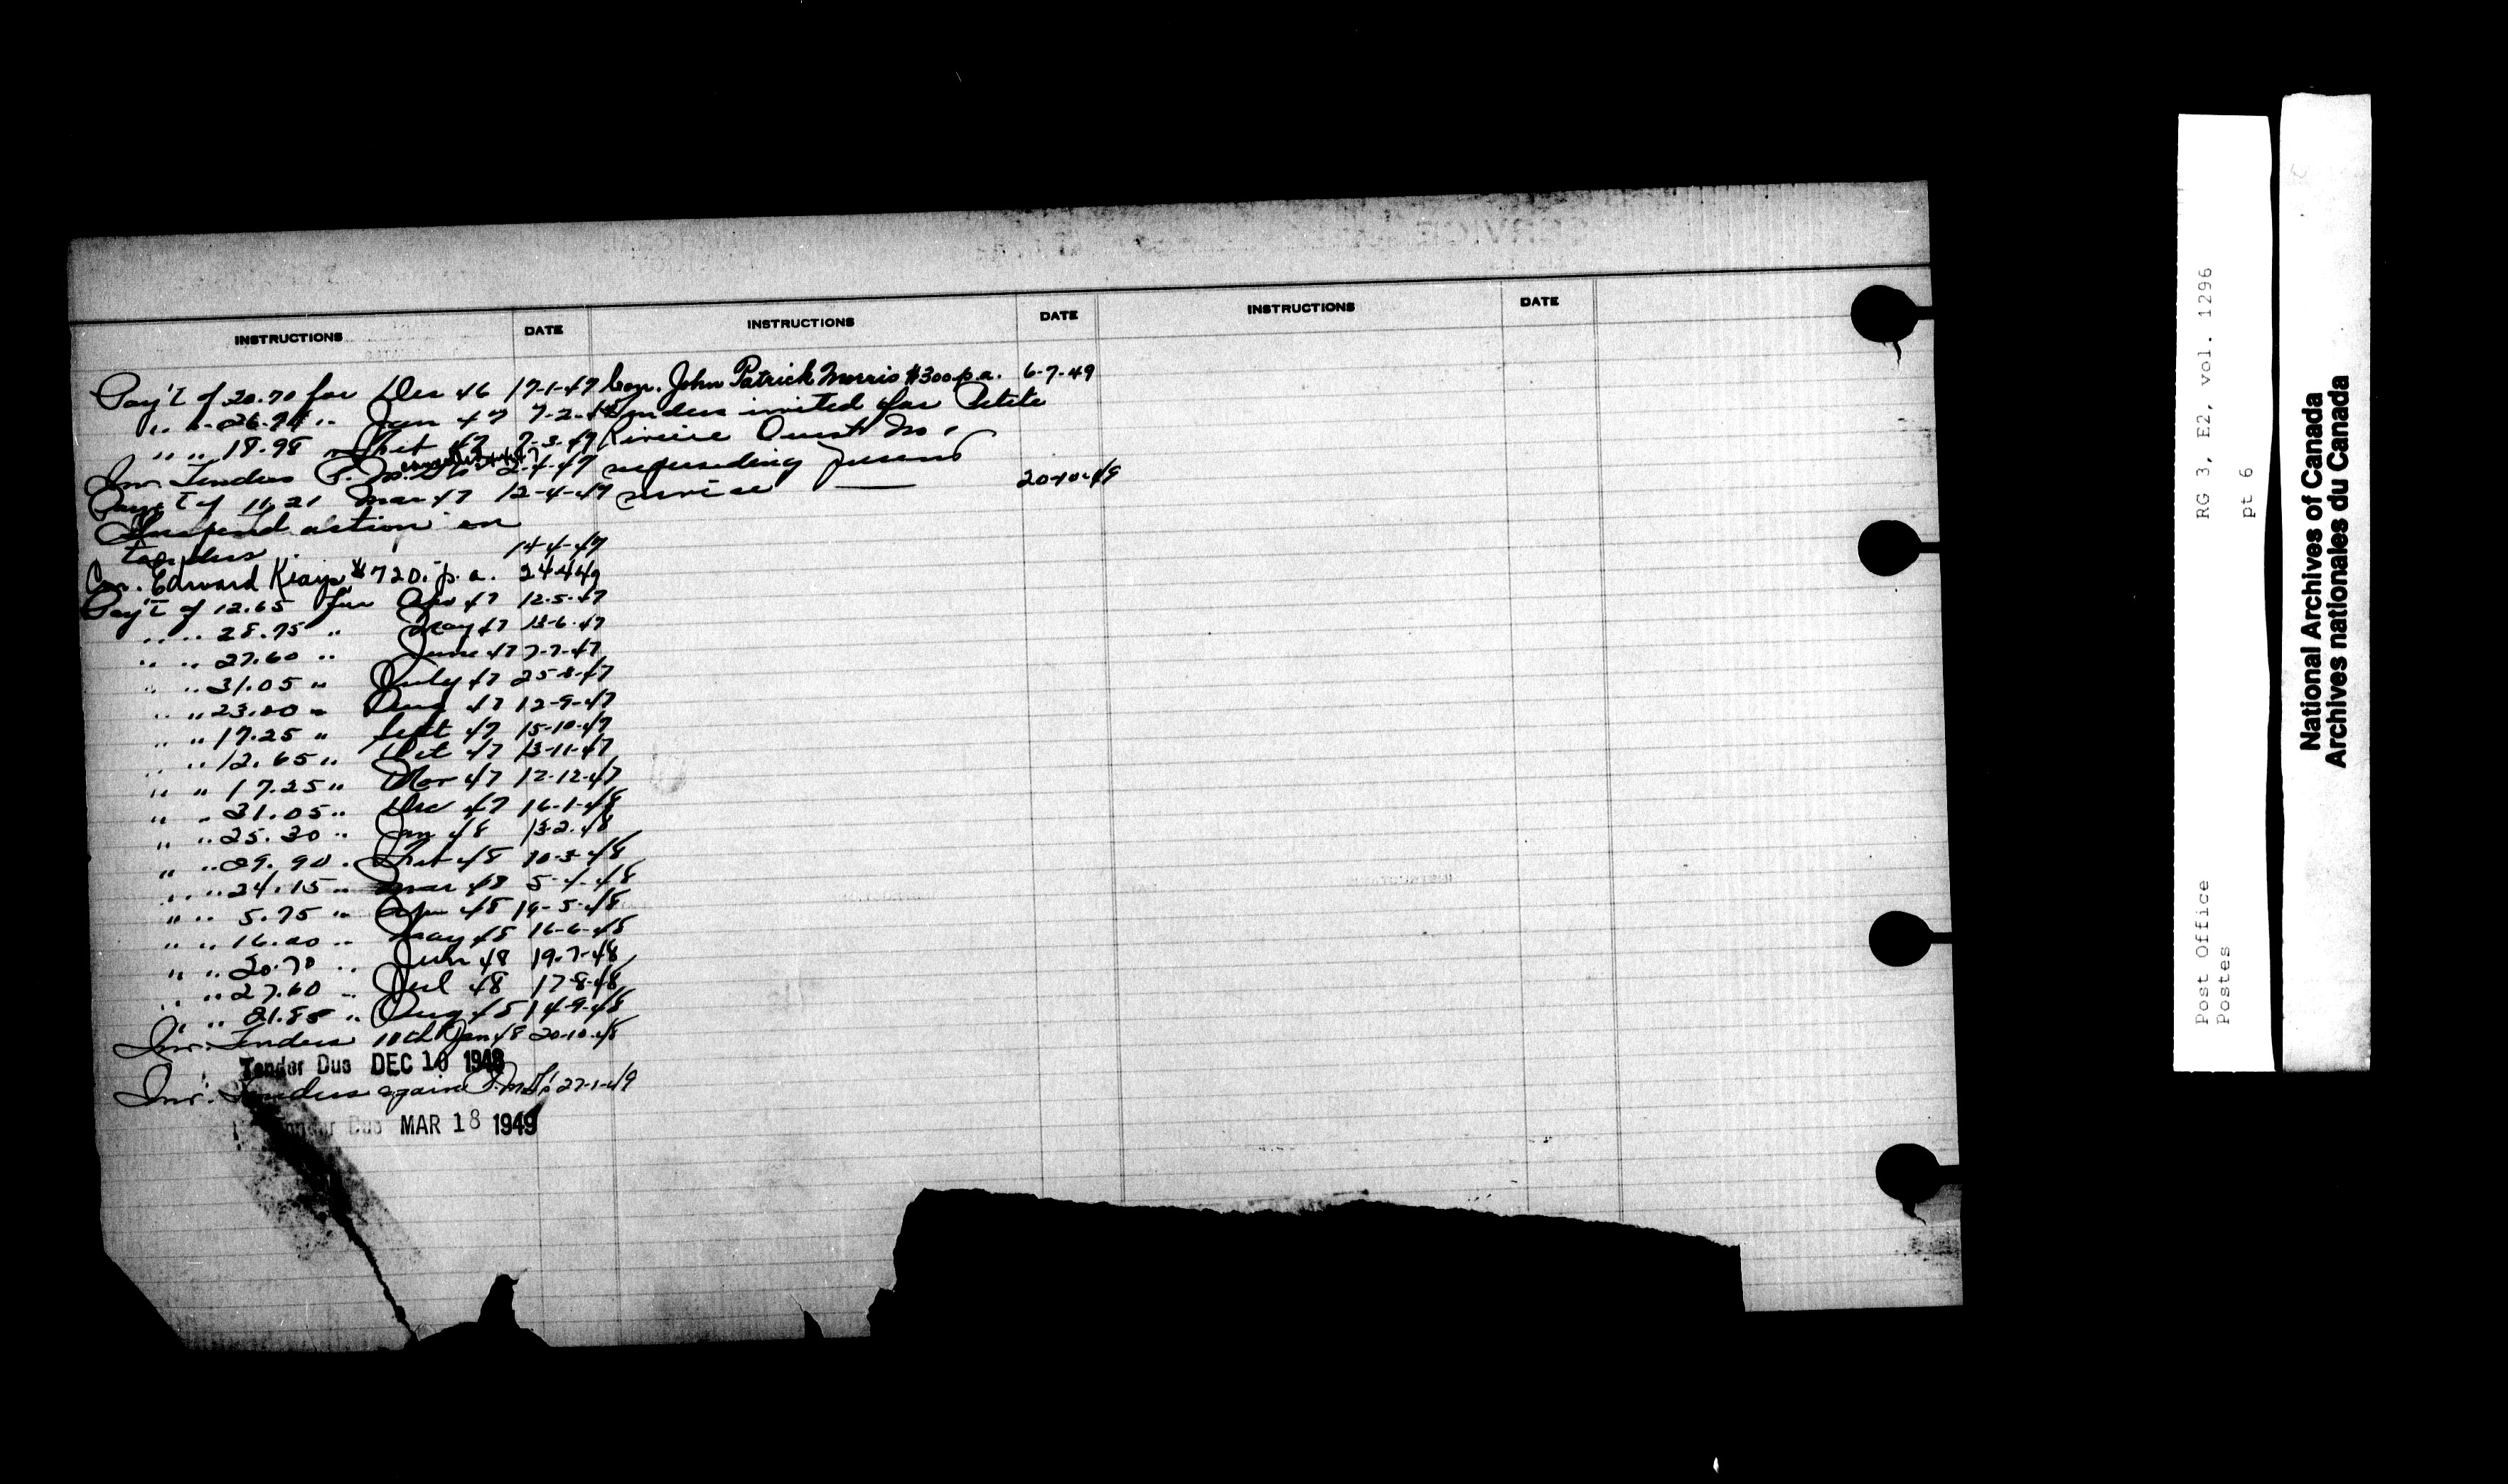 INSTRUCTIONS DATE INSTRUCTIONS DATE INSTRUCTIONS DATE
Pay't of 20.70 for Dec 46 17-1-47
" " 26.91 " Jan 47 7-2-47
" " 18.98 " Feb 47 7-3-47
Inv. Tenders P.M. 2-4-47
Pay't of 11.21 Mar 47 12-4-47
Suspend action on
tenders 14-4-47
Con. Edward Keays $720. p.a. 24449
Pay't of 12.65 for Apr 47 12-5-47
" " 28.75 " May 47 13-6-47
" " 27.60 " June 47 7-7-47
" " 31.05 " July 47 25-8-47
" " 23.00 " Aug 47 12-9-47
" " 17.25 " Sept 47 15-10-47
" " 12.65 " Oct 47 13-11-47
" " 17.25 " Nov 47 12-12-47
" " 31.05 " Dec 47 16-1-48
" " 25.30 " Jan 48 13-2-48
" " 29.90 " Feb 48 10-3-48
" " 24.15 " Mar 48 5-4-48
" " 5.75 " Apr 48 19-5-48
" " 16.00 " May 48 16-6-48
" " 20.70 " Jun 48 19-7-48
" " 27.60 " Jul 48 17-8-48
" " 21.85 " Aug 48 14-9-48
Inv. Tenders 10th Jan 48 20-10-48
Tender Due DEC 10 1948
Inv. Tenders again P.M. 27-1-49
Tender Due MAR 18 1949
Con. John Patrick Morris $300 p.a. 6-7-49
Tenders invited for Petite
Riviere Ouest No.
superseding present
service — 20-10-49
RG 3, E2, vol. 1296
pt 6
Post Office
Postes
National Archives of Canada
Archives nationales du Canada